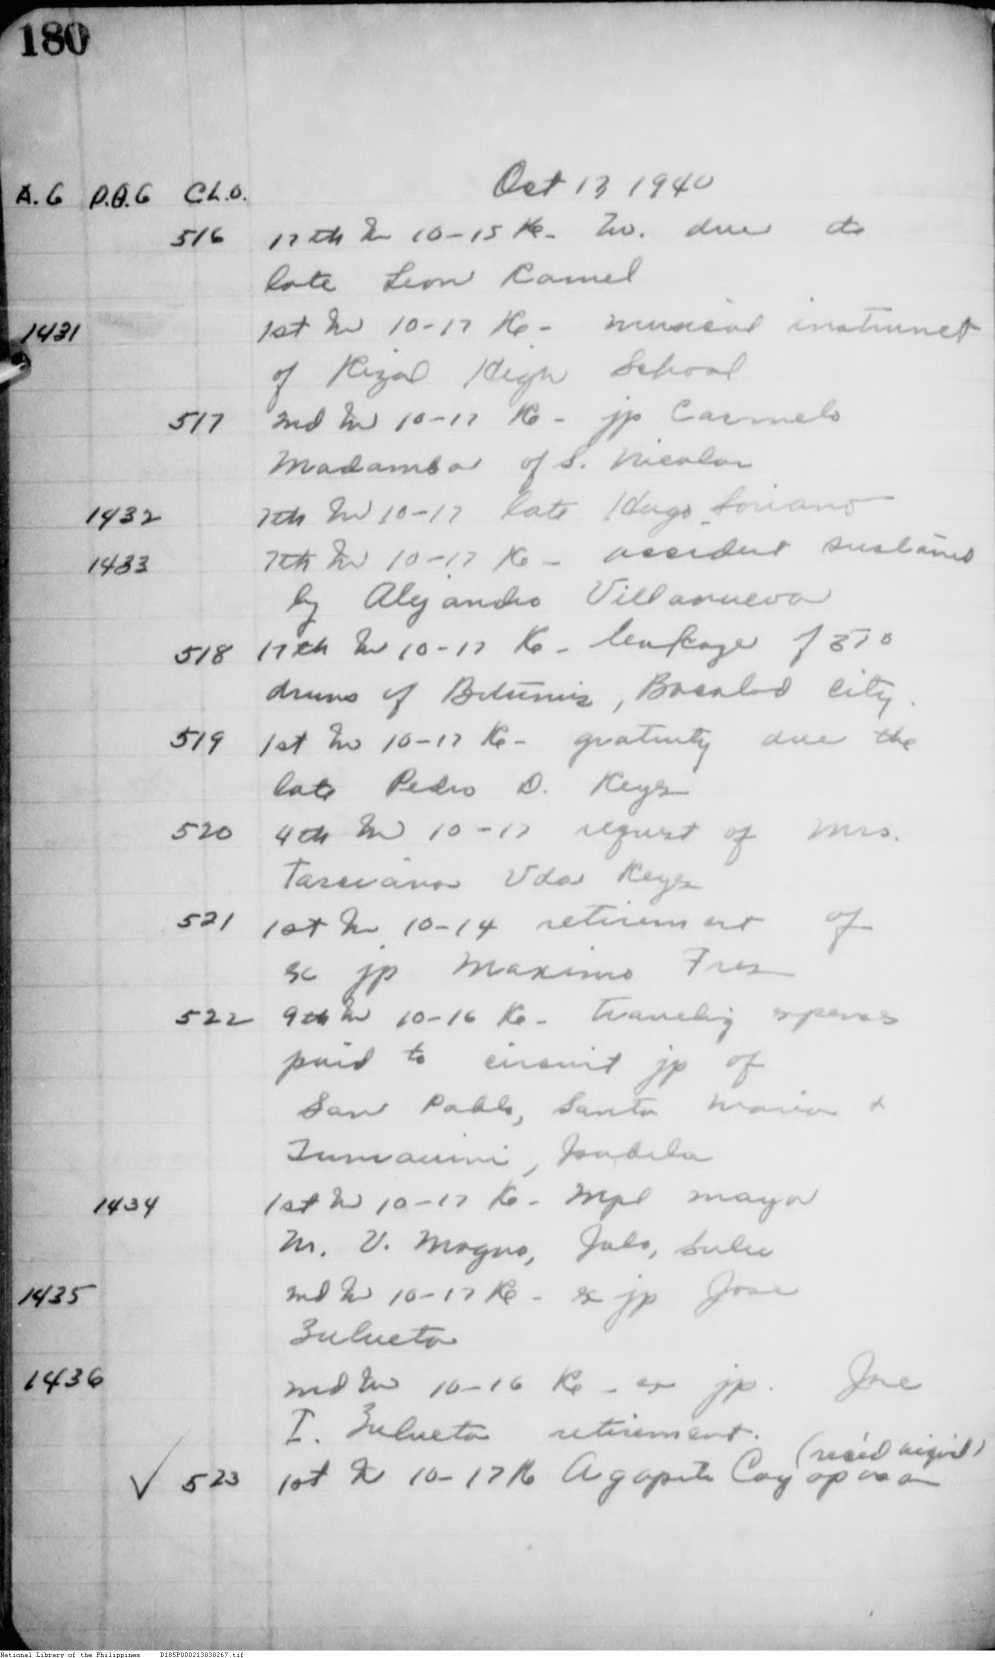 180
Oct 13 1940
A.G P.A.G C.L.O.
516 17th In 10-15 Re- due to
late Leon Ramel
1431 1st In 10-17 Re- musical instrumet
of Rizal High School
517 2nd In 10-17 Re- jp Carmelo
Madamba of S. Nicolas
1432 7th In 10-17 late Hugo Soriano
1433 7th In 10-17 Re- accident sustained
by Alejandro Villanueva
518 17th In 10-17 Re- leakage of 370
drums of , Bacolod City.
519 1st In 10-17 Re- gratuity due the
late Pedro D. Reyes
520 4th In 10-17 request of Mrs.
Tarciana Vda Reyes
521 1st In 10-14 retirement of
ex jp Maximo
522 9th In 10-16 Re- traveling expenses
paid to circuit jp of
San Pablo, Santa Maria &
Tumauini, Isabela
1434 1st In 10-17 Re- Mpl mayor
M. V. Magno, Jolo, Sulu
1435 2nd In 10-17 Re- ex jp Jose
Zulueta
1436 2nd In 10-16 Re- ex jp. Jose
I. Zulueta retirement.
(rec'd )
✓ 523 1st In 10-17 Re Agapito
National Library of the Philippines D185P000213830267.tif